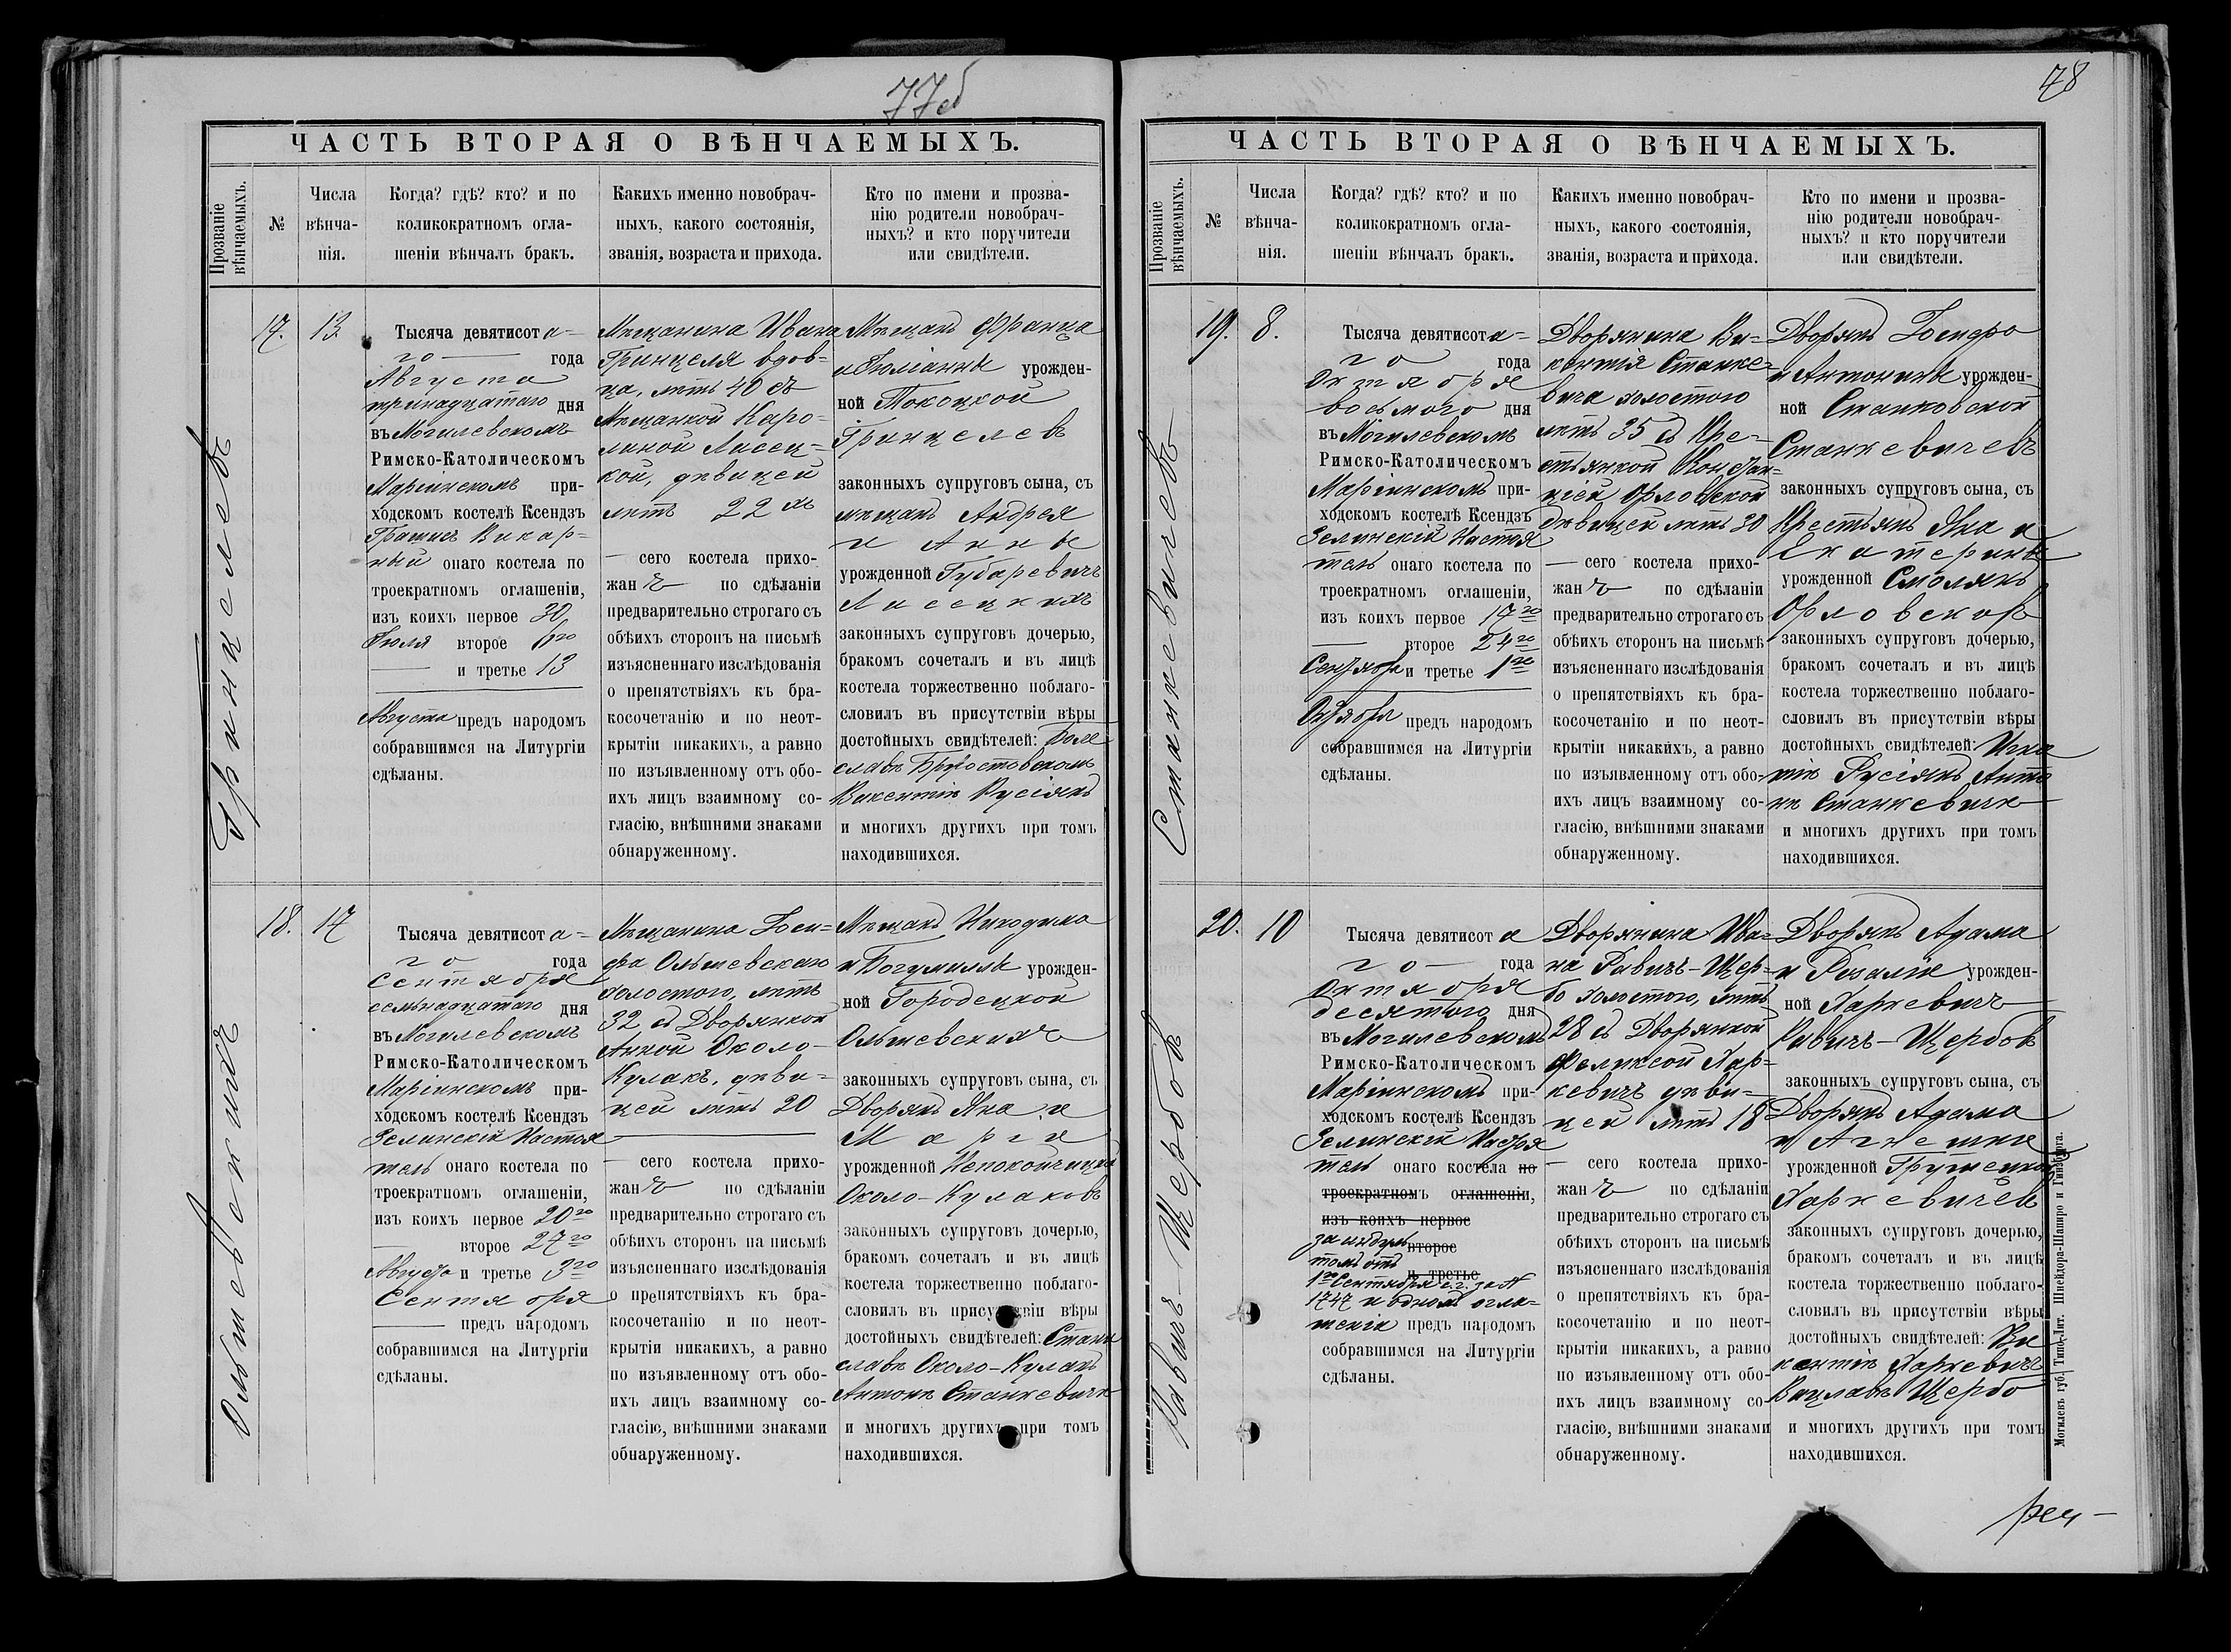 77об
ЧАСТЬ ВТОРАЯ О ВѢНЧАЕМЫХЪ.
Прозваніе
вѣнчаемыхъ.
№
Числа
вѣнча-
нія.
Когда? гдѣ? кто? и по
коликократномъ огла-
шеніи вѣнчалъ бракъ.
Какихъ именно новобрач-
ныхъ, какого состоянія,
званія, возраста и прихода.
Кто по имени и прозва-
нію родители новобрач-
ныхъ? и кто поручители
или свидѣтели.
Гринцелевъ
17.
13
Тысяча девятисота-
го года
Августа
тринадцатаго дня
въ Могилевскомъ
Римско-Католическомъ
Маріинскомъ при-
ходскомъ костелѣ Ксендзъ
Викар-
ный онаго костела по
троекратномъ оглашеніи,
изъ коихъ первое 30
Іюля второе 6го
и третье 13
Августа предъ народомъ
собравшимся на Литургіи
сдѣланы.
Мѣщанина Ивана
Гринцеля вдов-
ца, лѣтъ 40 съ
Мѣщанкой Каро-
линой Лисец-
кой, дѣвицей
лѣтъ 22хъ
сего костела прихо-
жанъ по сдѣланіи
предварительно строгаго съ
обѣихъ сторонъ на письмѣ
изъясненнаго изслѣдованія
о препятствіяхъ къ бра-
косочетанію и по неот-
крытіи никакихъ, а равно
по изъявленному отъ обо-
ихъ лицъ взаимному со-
гласію, внѣшними знаками
обнаруженному.
Мѣщанъ Франца
и Юліанны урожден-
ной Токоцкой
Гринцелевъ
законныхъ супруговъ сына, съ
мѣщанъ Андрея
и Анны
урожденной Губаревичъ
Лисецкихъ
законныхъ супруговъ дочерью,
бракомъ сочеталъ и въ лицѣ
костела торжественно поблаго-
словилъ въ присутствіи вѣры
достойныхъ свидѣтелей: Боле
славѣ Бржостовскомъ
Викентіѣ Русіянъ
и многихъ другихъ при томъ
находившихся.
Ольшевскихъ
18.
17
Тысяча девятисота-
го года
Сентября
семьнадцатаго дня
въ Могилевскомъ
Римско-Католическомъ
Маріинскомъ при-
ходскомъ костелѣ Ксендзъ
Зелинскій Настоя
тель онаго костела по
троекратномъ оглашеніи,
изъ коихъ первое 20го
второе 27го
Августа и третье 3го
Сентября
предъ народомъ
собравшимся на Литургіи
сдѣланы.
Мѣщанина Іоси-
фа Ольшевскаго
холостого, лѣтъ
32 съ Дворянкой
Анной Около-
Кулакъ, дѣви-
цей лѣтъ 20
сего костела прихо-
жанъ по сдѣланіи
предварительно строгаго съ
обѣихъ сторонъ на письмѣ
изъясненнаго изслѣдованія
о препятствіяхъ къ бра-
косочетанію и по неот-
крытіи никакихъ, а равно
по изъявленному отъ обо-
ихъ лицъ взаимному со-
гласію, внѣшними знаками
обнаруженному.
Мѣщанъ Никодима
и Богумиллы урожден-
ной Городецкой
Ольшевскихъ
законныхъ супруговъ сына, съ
Дворянъ Яна и
Маріи
урожденной Непокойчицкой
Около-Кулаковъ
законныхъ супруговъ дочерью,
бракомъ сочеталъ и въ лицѣ
костела торжественно поблаго-
словилъ въ присутствіи вѣры
достойныхъ свидѣтелей: Стани
славѣ Около-Кулакъ
Антонѣ Станкевичѣ
и многихъ другихъ при томъ
находившихся.
78
ЧАСТЬ ВТОРАЯ О ВѢНЧАЕМЫХЪ.
Прозваніе
вѣнчаемыхъ.
№
Числа
вѣнча-
нія.
Когда? гдѣ? кто? и по
коликократномъ огла-
шеніи вѣнчалъ бракъ.
Какихъ именно новобрач-
ныхъ, какого состоянія,
званія, возраста и прихода.
Кто по имени и прозва-
нію родители новобрач-
ныхъ? и кто поручители
или свидѣтели.
Станкевичевъ
19.
8.
Тысяча девятисота-
го года
Октября
восьмого дня
въ Могилевскомъ
Римско-Католическомъ
Маріинскомъ при-
ходскомъ костелѣ Ксендзъ
Зелинскій Настоя
тель онаго костела по
троекратномъ оглашеніи,
изъ коихъ первое 17го
второе 24го
Сентября и третье 1го
Октября предъ народомъ
собравшимся на Литургіи
сдѣланы.
Дворянина Ви-
кентія Станке-
вича холостого
лѣтъ 35 съ Кре-
стьянкой Констан-
ціей Орловской
дѣвицей лѣтъ 30
сего костела прихо-
жанъ по сдѣланіи
предварительно строгаго съ
обѣихъ сторонъ на письмѣ
изъясненнаго изслѣдованія
о препятствіяхъ къ бра-
косочетанію и по неот-
крытіи никакихъ, а равно
по изъявленному отъ обо-
ихъ лицъ взаимному со-
гласію, внѣшними знаками
обнаруженному.
Дворянъ Іосифа
и Антонины урожден-
ной Станковской
Станкевичевъ
законныхъ супруговъ сына, съ
Крестьянъ Яна и
Екатерины
урожденной Смолякъ
Орловскихъ
законныхъ супруговъ дочерью,
бракомъ сочеталъ и въ лицѣ
костела торжественно поблаго-
словилъ въ присутствіи вѣры
достойныхъ свидѣтелей: Игна
тіѣ Русіянъ Анто
нѣ Станкевичѣ
и многихъ другихъ при томъ
находившихся.
Равичъ-Щербовъ
20.
10
Тысяча девятисота
го года
Октября
десятого дня
въ Могилевскомъ
Римско-Католическомъ
Маріинскомъ при-
ходскомъ костелѣ Ксендзъ
Зелинскій Настоя
тель онаго костела по
троекратномъ оглашеніи,
изъ коихъ первое
за индуль второе
томъ отъ и третье
1го Сентября с.г. за №
1747 и одномъ огла-
шеніи предъ народомъ
собравшимся на Литургіи
сдѣланы.
Дворянина Ива-
на Равичъ-Щер-
бо холостого, лѣтъ
28 съ Дворянкой
Феликсой Хар-
кевичъ дѣви-
цей лѣтъ 18
сего костела прихо-
жанъ по сдѣланіи
предварительно строгаго съ
обѣихъ сторонъ на письмѣ
изъясненнаго изслѣдованія
о препятствіяхъ къ бра-
косочетанію и по неот-
крытіи никакихъ, а равно
по изъявленному отъ обо-
ихъ лицъ взаимному со-
гласію, внѣшними знаками
обнаруженному.
Дворянъ Адама
и Розаліи урожден-
ной Харкевичъ
Равичъ-Щербовъ
законныхъ супруговъ сына, съ
Дворянъ Адама
и Агнешки
урожденной Грушецкой
Харкевичевъ
законныхъ супруговъ дочерью,
бракомъ сочеталъ и въ лицѣ
костела торжественно поблаго-
словилъ въ присутствіи вѣры
достойныхъ свидѣтелей: Ви
кентіѣ Харкевичъ
Вацлавѣ Щербо
и многихъ другихъ при томъ
находившихся.
Могилевъ губ. Типо-Лит. Шнейдора-Шапиро и Гинзбурга.